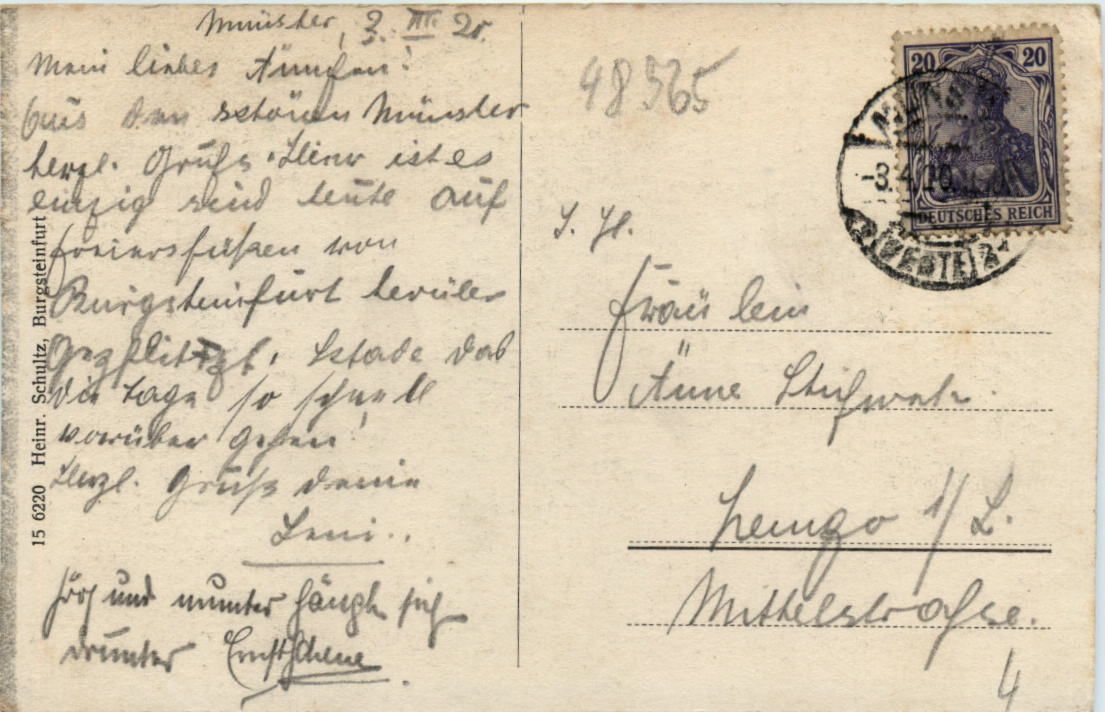 Münster, 3. III. 20.
Mein liebes Ännchen!
Aus dem schönen Münster
herzl. Grüße. Hier ist es
einzig sind heute auf
Freiersfüßen von
Burgsteinfurt herüber
geflitzt. Schade daß
die Tage so schnell
vorüber gehen!
Herzl. Grüße deine
Leni..
Froh und munter hängt sich
drunter Ernst
15 6220 Heinr. Schultz, Burgsteinfurt
48565
20 20
DEUTSCHES REICH
MÜNSTER
-3.4.20
(WESTF.)
S. Hl.
Fräulein
Änne
Lemgo i/L.
Mittelstraße.
4